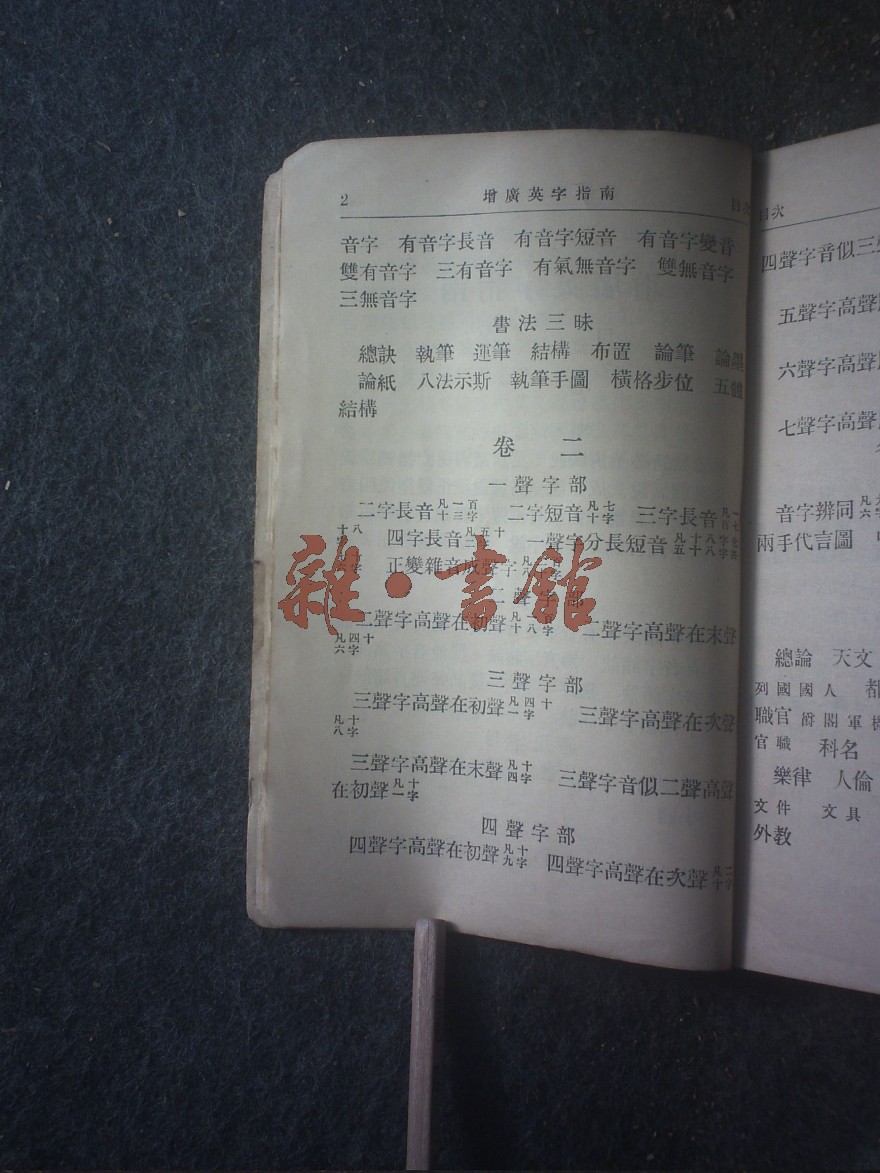 2 增廣英字指南 目次
音字 有音字長音 有音字短音 有音字變音
雙有音字 三有音字 有氣無音字 雙無音字
三無音字
書法三昧
總訣 執筆 運筆 結構 布置 論筆 論墨
論紙 八法示斯 執筆手圖 橫格步位 五體
結構
卷二
一聲字部
二字長音 凡一百十三字 二字短音 凡七十字 三字長音
四字長音 一聲字分長短音
正變雜音成聲字
二聲字部
二聲字高聲在初聲 二聲字高聲在末聲
凡四十六字
三聲字部
三聲字高聲在初聲 凡四十一字 三聲字高聲在次聲
凡十八字
三聲字高聲在末聲 凡十四字 三聲字音似二聲高聲
在初聲 凡十一字
四聲字部
四聲字高聲在初聲 凡十九字 四聲字高聲在次聲 凡二十字
目次
四聲字音似三
五聲字高聲
六聲字高聲
七聲字高聲
音字辨同
兩手代言圖
總論 天文
列國國人 都
職官 爵閣軍機
官職 科名
樂律 人倫
文件 文具
外教
雜·書館